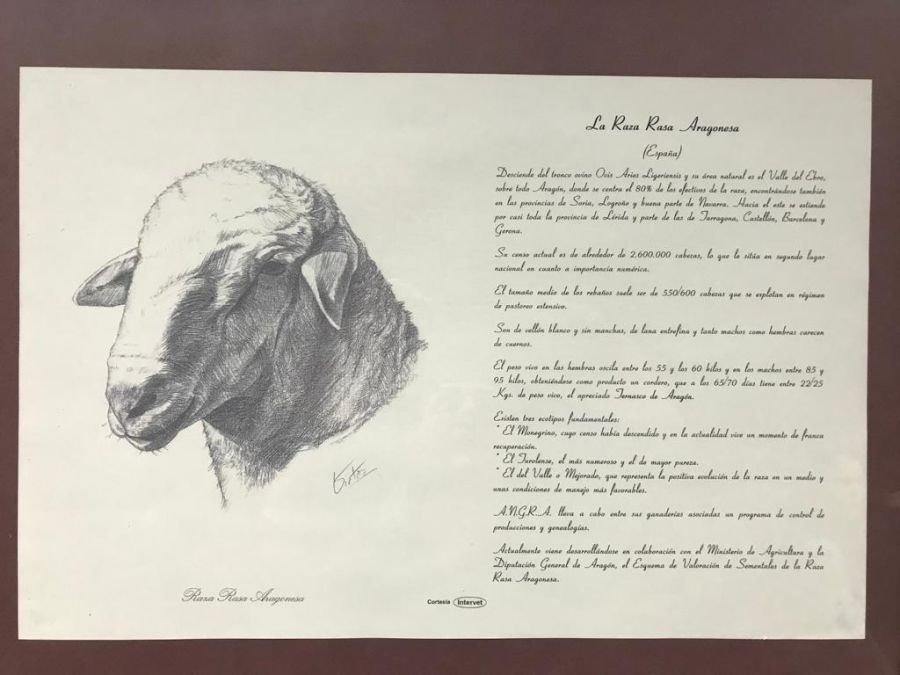 La Raza Rasa Aragonesa
(España)
Desciende del tronco ovino Ovis Aries Ligeriensis y su área natural es el Valle del Ebro,
sobre todo Aragón, donde se centra el 80% de los efectivos de la raza, encontrándose también
en las provincias de Soria, Logroño y buena parte de Navarra. Hacia el este se extiende
por casi toda la provincia de Lérida y parte de las de Tarragona, Castellón, Barcelona y
Gerona.
Su censo actual es de alrededor de 2.600.000 cabezas, lo que le sitúa en segundo lugar
nacional en cuanto a importancia numérica.
El tamaño medio de los rebaños suele ser de 550/600 cabezas que se explotan en régimen
de pastoreo extensivo.
Son de vellón blanco y sin manchas, de lana entrefina y tanto machos como hembras carecen
de cuernos.
El peso vivo en las hembras oscila entre los 55 y los 60 kilos y en los machos entre 85 y
95 kilos, obteniéndose como producto un cordero, que a los 65/70 días tiene entre 22/25
Kgs. de peso vivo, el apreciado Ternasco de Aragón.
Existen tres ecotipos fundamentales:
* El Monegrino, cuyo censo había descendido y en la actualidad vive un momento de franca
recuperación.
* El Turolense, el más numeroso y el de mayor pureza.
* El del Valle o Mejorado, que representa la positiva evolución de la raza en un medio y
unas condiciones de manejo más favorables.
A.N.G.R.A. lleva a cabo entre sus ganaderías asociadas un programa de control de
producciones y genealogías.
Actualmente viene desarrollándose en colaboración con el Ministerio de Agricultura y la
Diputación General de Aragón, el Esquema de Valoración de Sementales de la Raza
Rasa Aragonesa.
Raza Rasa Aragonesa
Cortesía Intervet